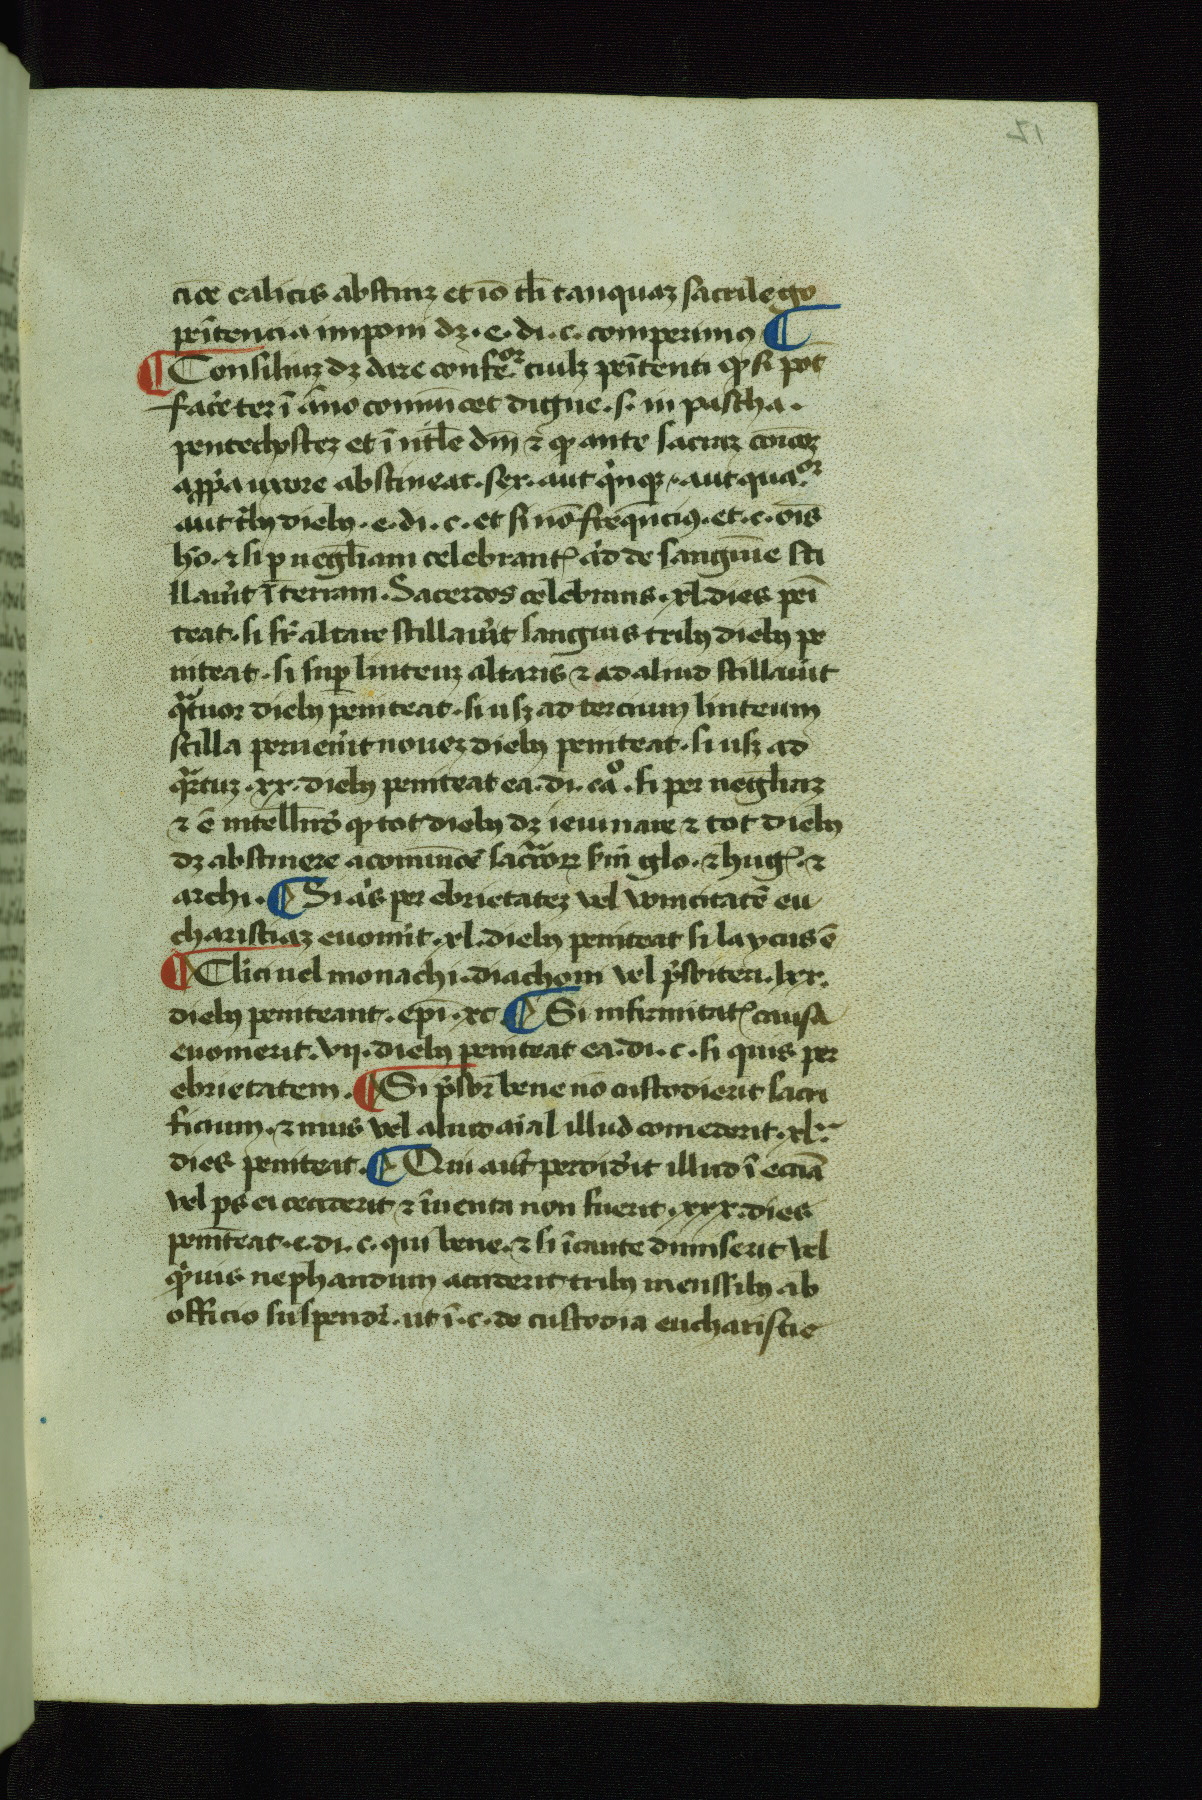 12
cioe calicis abstinꝫ et iō tħ tanquaꝫ sacrilego
pēitencia imponi dꝫ · e · di · c · comperimꝯ ¶
¶ Consiliuꝫ dꝫ dare confeᵒʳ cuilꝫ pēitenti qꝫ si pōt
fac̓e ter ī āno comūicet digne · s · in pascha ·
pentechosteꝫ et ī nťle dn̄i ⁊ qꝫ ante sacraꝫ
a ꝓpa uxore abstineat · sex · aut qͥnqꝫ · aut quaᵒʳ
aut tͥbꝰ diebꝰ · e · di · c · et si nō freqūcius · et · c · oīs
hō · ⁊ si p negħiam celebrantꝭ aͥd de sanguīe sti
llau̓it ī terram · Sacerdos celebrans · xl · dies pēi
teat · si sꝉ altare stillau̓it sanguis tribꝰ diebꝰ pe
niteat · si sup linteuꝫ altaris ⁊ ad aliud stillau̓it
qͣtuor diebꝰ peniteat · si usqꝫ ad tercium linteum
stilla peruen̓it noueꝫ diebꝰ peniteat · si usqꝫ ad
qͣrtuꝫ · xx · diebꝰ peniteat ea · di · cᵒ · si per negħiaꝫ
⁊ ē intellnͩꝰ qꝫ tot diebꝰ dꝫ ieiunare ⁊ tot diebꝰ
dꝫ abstinere a comūioē sacͣtorꝝ km̄ glo · ⁊ hugꝭ · ⁊
archi · ¶ Si aͥs per ebrietateꝫ vel vomcitatē eu
charistiaꝫ euom̓it · xl · diebꝰ peniteat si laycus ē
¶ Clici uel monachi · diachoni vel p̄sbiteri · lxx ·
diebꝰ peniteant · ep̄i · xc ¶ Si infirmitatꝭ causa
euomerit · vij · diebꝰ peniteat ea · di · c · si quis per
ebrietatem · ¶ Si p̄sbr̄ bene nō custodierit sacri
ficium · ⁊ mus vel aliud aīal illud comederit · xlᵗᵃ
dies peniteat · ¶ Qui aut̄ perdid̓it illud ī ecc̄ia
vel ps ei ceciderit ⁊ īuenta non fuerit · xxx · dies
penīteat · e · di · c · qui bene · ⁊ si īcaute dimiserit vel
qͣuis nephandum acciderit tribꝰ menssibꝰ ab
officio suspendr̄ · ut ī · c · de custodia eucharistie